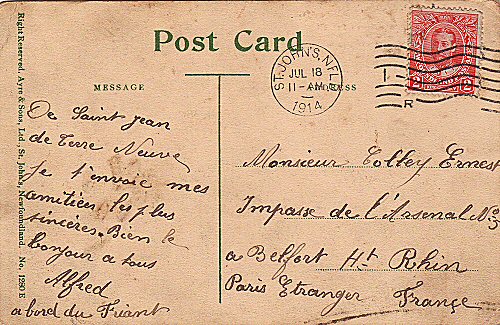 Post Card
MESSAGE
ADDRESS
ST. JOHN'S, NFLD
JUL 18
11-AM
1914
R
2 2
Right Reserved, Ayre & Sons, Ltd., St. John's, Newfoundland. No. 1280 E
De Saint Jean
de Terre Neuve
Je t'envoie mes
amitiées les plus
sincères. Bien le
bonjour a tous
Alfred
a bord du Friant
Monsieur Colley Ernest
Impasse de l'Arsenal No 5
a Belfort Ht Rhin
Paris Etranger France